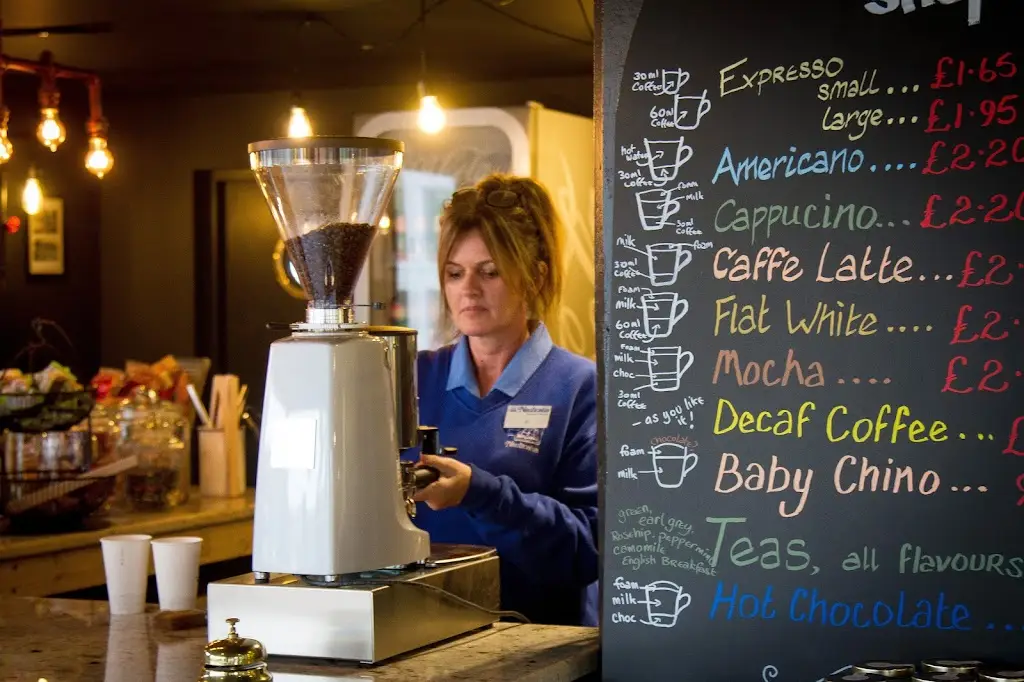 shop
30ml
Coffee
60ml
Coffee
Expresso
small ... £1.65
large ... £1.95
hot
water
30ml
coffee
Americano .... £2.20
foam
milk
30ml
Coffee
Cappucino... £2.20
milk
foam
30ml
coffee
Caffe Latte ... £2.
foam
milk
60ml
coffee
Flat White .... £2.
foam
milk
choc
30ml
Coffee
Mocha .... £2.
- as you like
it!
Decaf Coffee ... £
Chocolate?
foam
milk
Baby Chino ...
green,
earl grey.
Rosehip. peppermint
camomile
English Breakfast
Teas, all flavours
foam
milk
choc
Hot Chocolate ..